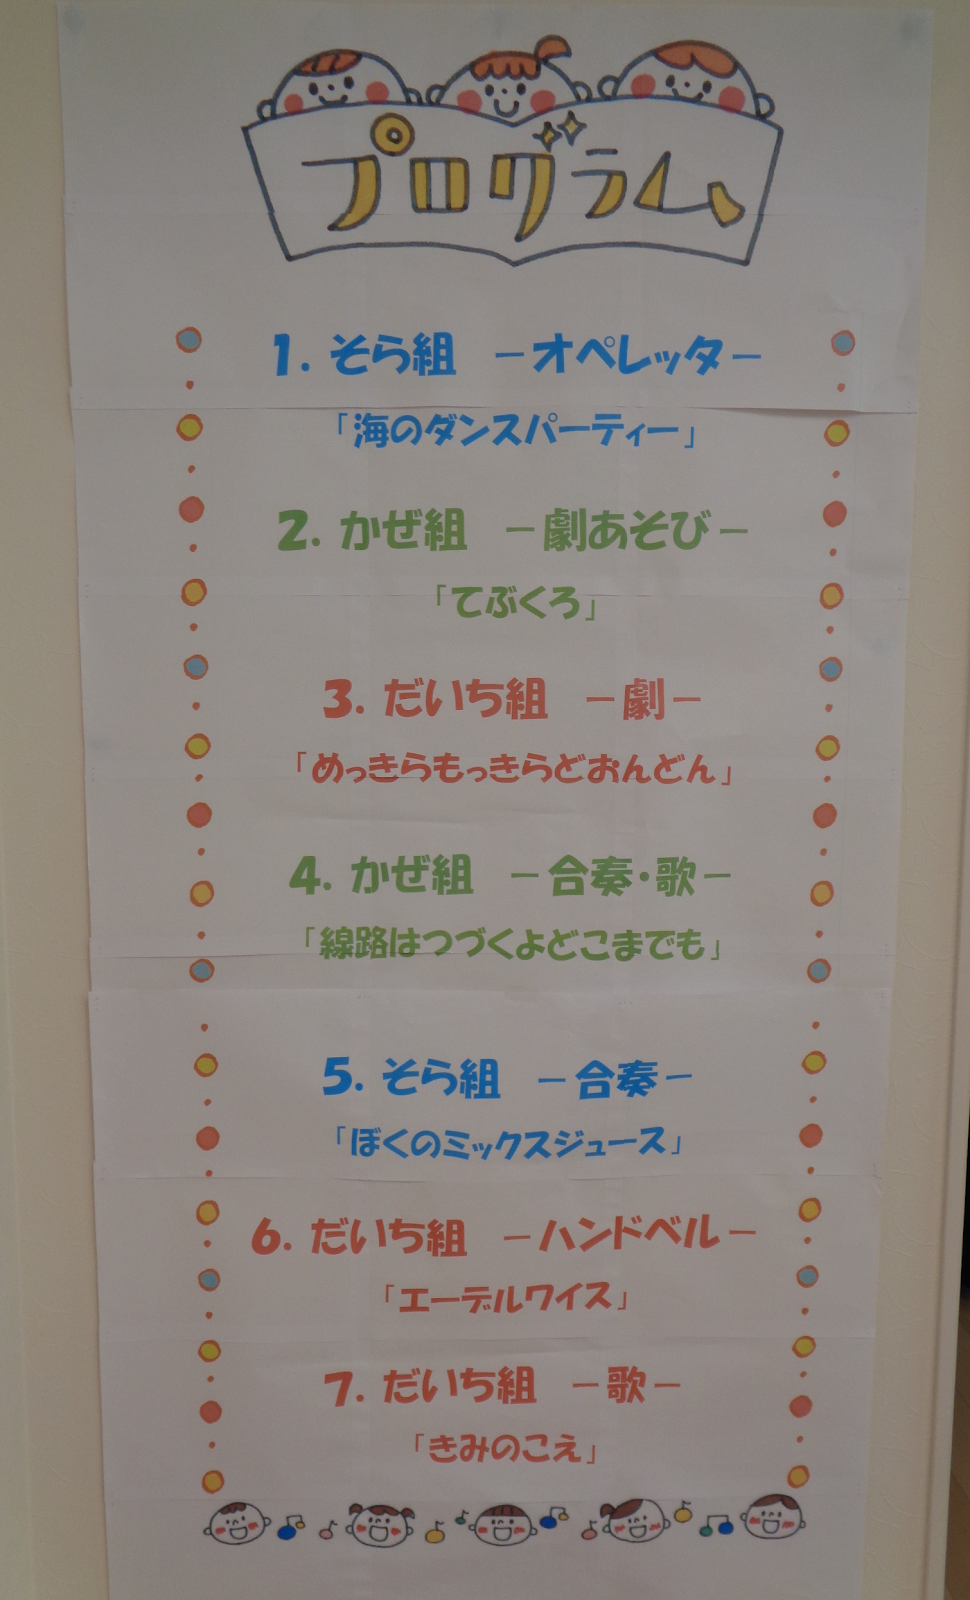 プログラム
1. そら組 －オペレッタ－
「海のダンスパーティー」
2. かぜ組 －劇あそび－
「てぶくろ」
3. だいち組 －劇－
「めっきらもっきらどおんどん」
4. かぜ組 －合奏・歌－
「線路はつづくよどこまでも」
5. そら組 －合奏－
「ぼくのミックスジュース」
6. だいち組 －ハンドベル－
「エーデルワイス」
7. だいち組 －歌－
「きみのこえ」